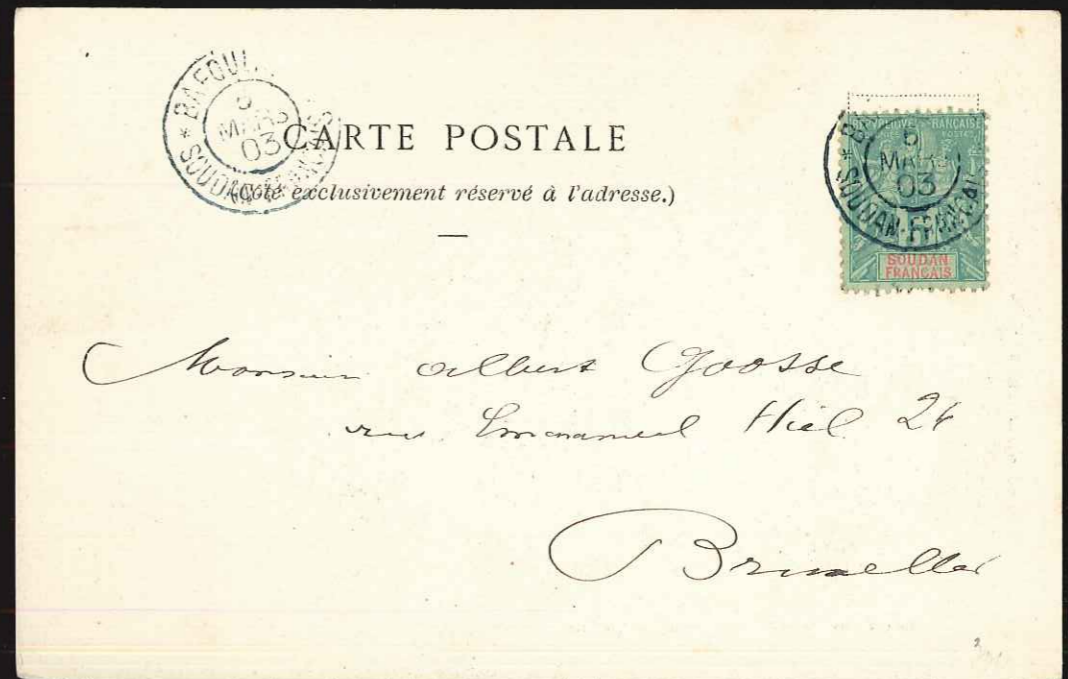 BAFOUL
5
MARS
03
* SOUDAN-FRANÇAIS
CARTE POSTALE
(Côté exclusivement réservé à l'adresse.)
FRANÇAISE
POSTES
* BA
5
MARS
03
SOUDAN-FRANÇAI
5
SOUDAN
FRANÇAIS
Monsieur Albert Goosse
rue Emmanuel Hiel 24
Bruxelles